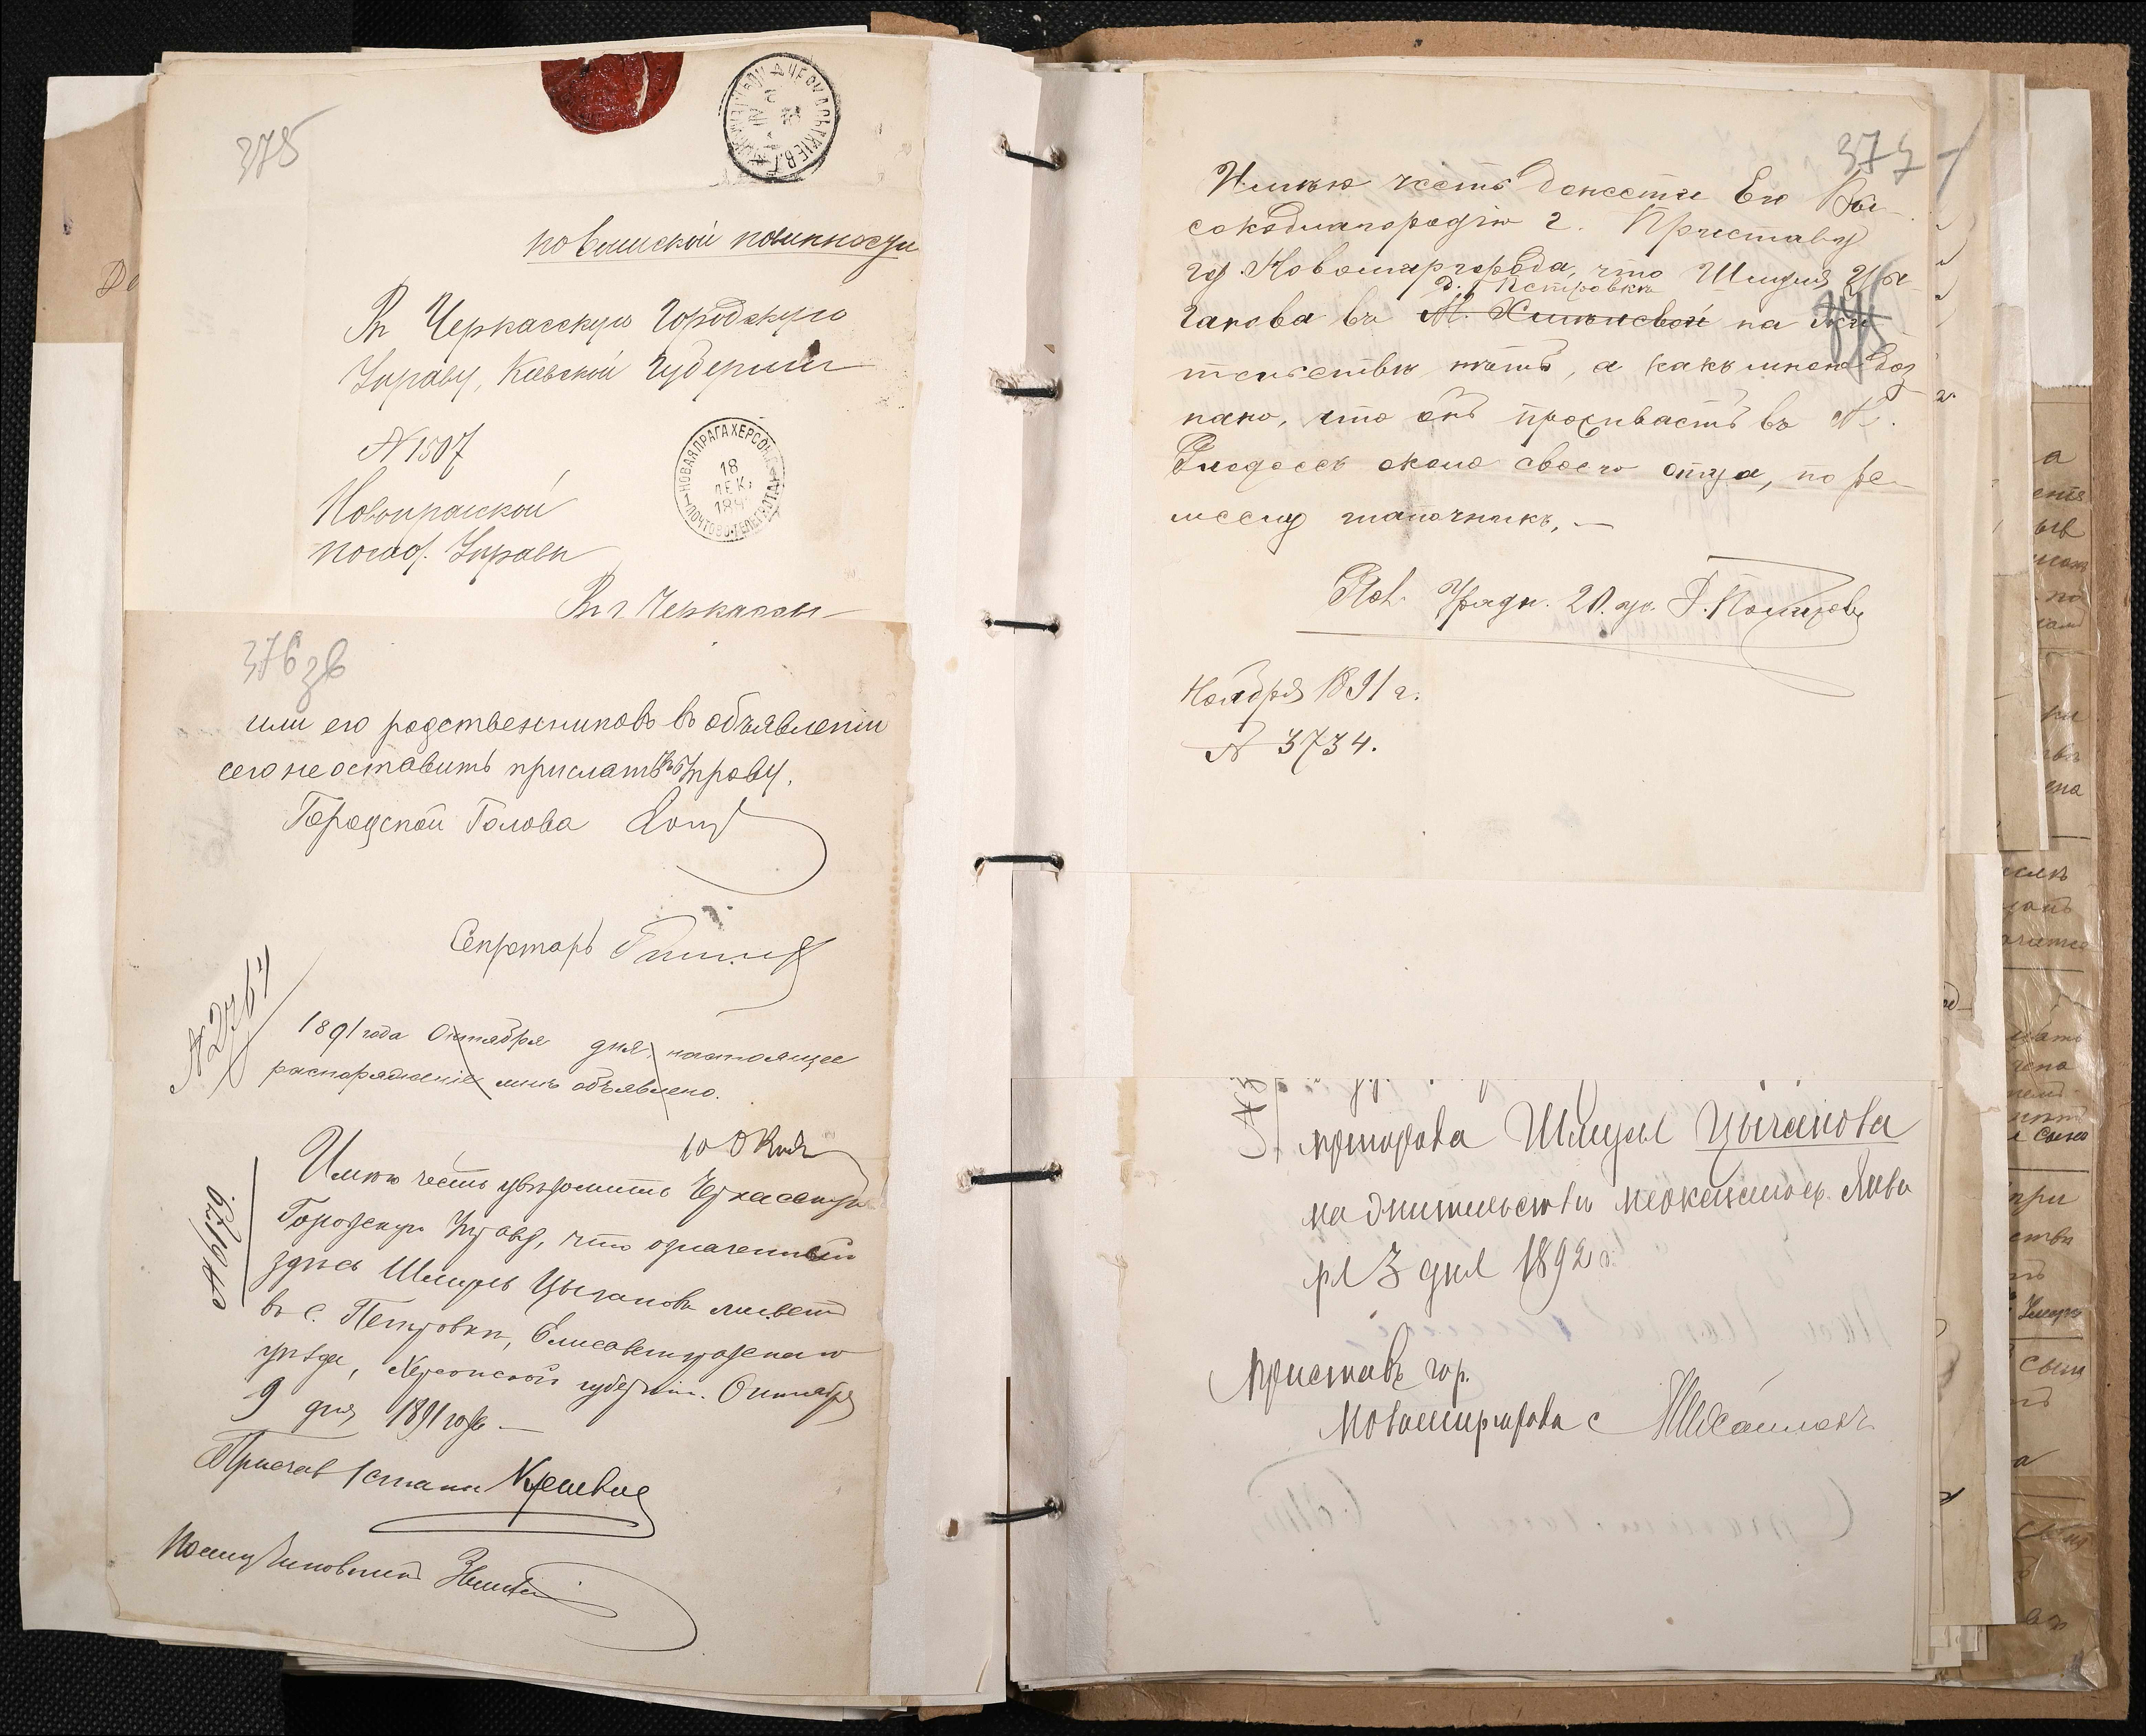 375
по воинской повинности
Въ Черкасскую Городскую
Управу, Киевской Губернии
№ 1507
НОВАЯ ПРАГА ХЕРСОН.
18
ДЕК.
189
ПОЧТОВО-ТЕЛЕГ.
Новопражской
посад. Управы
Въ г. Черкассы
376 зв
или его родственниковъ въ объявленіи
сего не оставить прислать въ Управу.
Городской Голова
Секретарь
№ 2761
1891 года Октября дня, настоящее
распоряженіе мнѣ объявлено.
10 Окт
Имѣю честь увѣдомить Черкасскую
Городскую Управу, что означенный
здѣсь Шмуль Цыгановъ живетъ
въ с. Петровкѣ, Елисаветградскаго
уѣзда, Херсонской губерніи. Октября
9 дня 1891 года
№ 6729
Приставъ 1 стана
377
Имѣю честь донести Его Вы-
сокоблагородію г. Приставу
гор. Новомиргорода, что Шмуля Цы-
д. Петровкѣ
ганова въ на жи-
тельствѣ нѣтъ, а какъ мною доз
нано, что онъ проживаетъ въ М.
около своего отца, по ре-
меслу шапочникъ,
Пол. Урядн. 20. уч.
Ноября 1891 г.
№ 3734.
Шмуля Цыганова
на жительствѣ не оказалось. Янва
ря 3 дня 1892 г.
Приставъ гор.
Новомиргорода